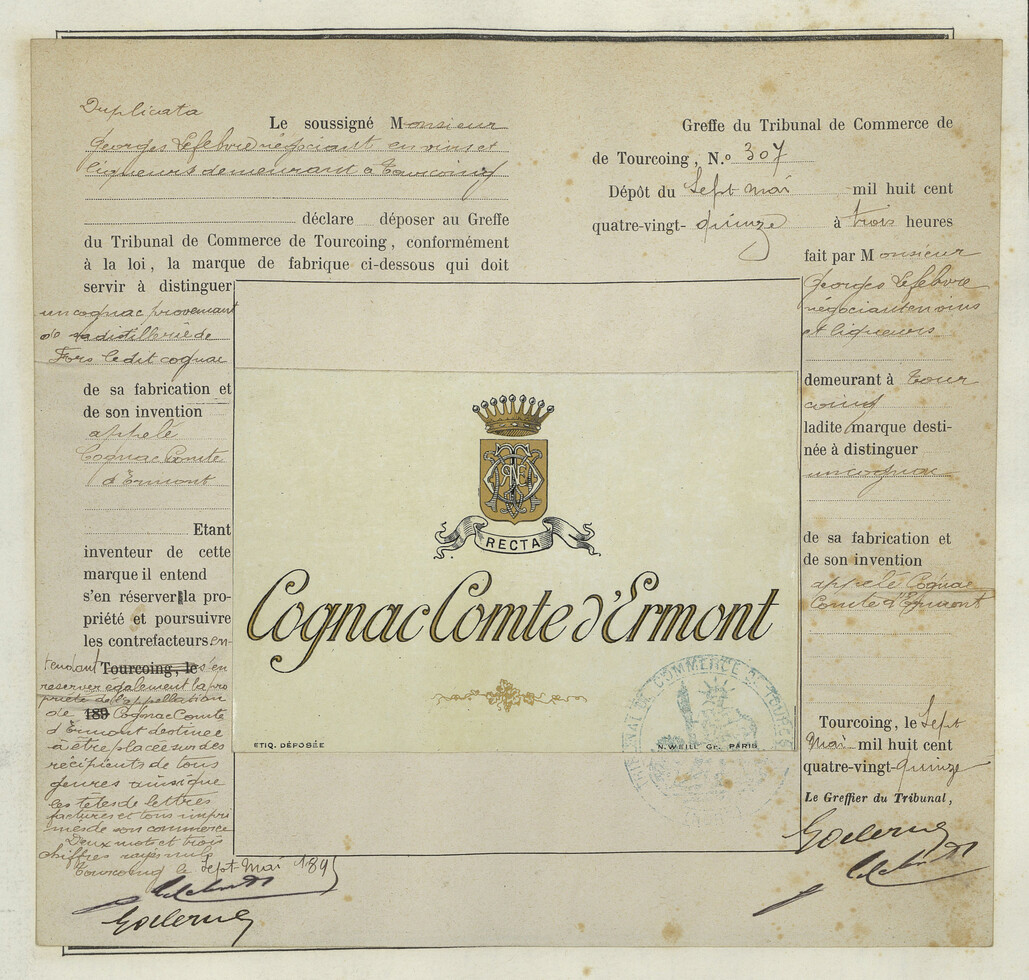 Duplicata
Le soussigné Monsieur
Georges Lefebvre négociant en vins et
liqueurs demeurant à Tourcoing
déclare déposer au Greffe
du Tribunal de Commerce de Tourcoing, conformément
à la loi, la marque de fabrique ci-dessous qui doit
servir à distinguer
un cognac provenant
de sa distillerie de
Fors ledit cognac
de sa fabrication et
de son invention
appelé
Cognac Comte
d'Ermont
Etant
inventeur de cette
marque il entend
s'en réserver la pro-
priété et poursuivre
les contrefacteurs en-
tendant Tourcoing, le s'en
reserver egalement la pro
priété de l'appellation
de 189 Cognac Comte
d'Ermont destinée
à être placée sur des
récipients de tous
genres ainsi que
les têtes de lettres
factures et tous impri
més de son commerce
Deux mots et trois
chiffres rayés nuls
Tourcoing le Sept Mai 1895
RECTA
Cognac Comte d'Ermont
ETIQ. DÉPOSÉE
N. WEILL Gr. PARIS
TRIBUNAL DE COMMERCE DE
Greffe du Tribunal de Commerce de
de Tourcoing, N.º 307
Dépôt du Sept Mai mil huit cent
quatre-vingt- quinze à trois heures
fait par Monsieur
Georges Lefebvre
négociant en vins
et liqueurs
demeurant à Tour
coing
ladite marque desti-
née à distinguer
un cognac
de sa fabrication et
de son invention
appelé Cognac
Comte d'Ermont
Tourcoing, le Sept
Mai mil huit cent
quatre-vingt-quinze
Le Greffier du Tribunal,